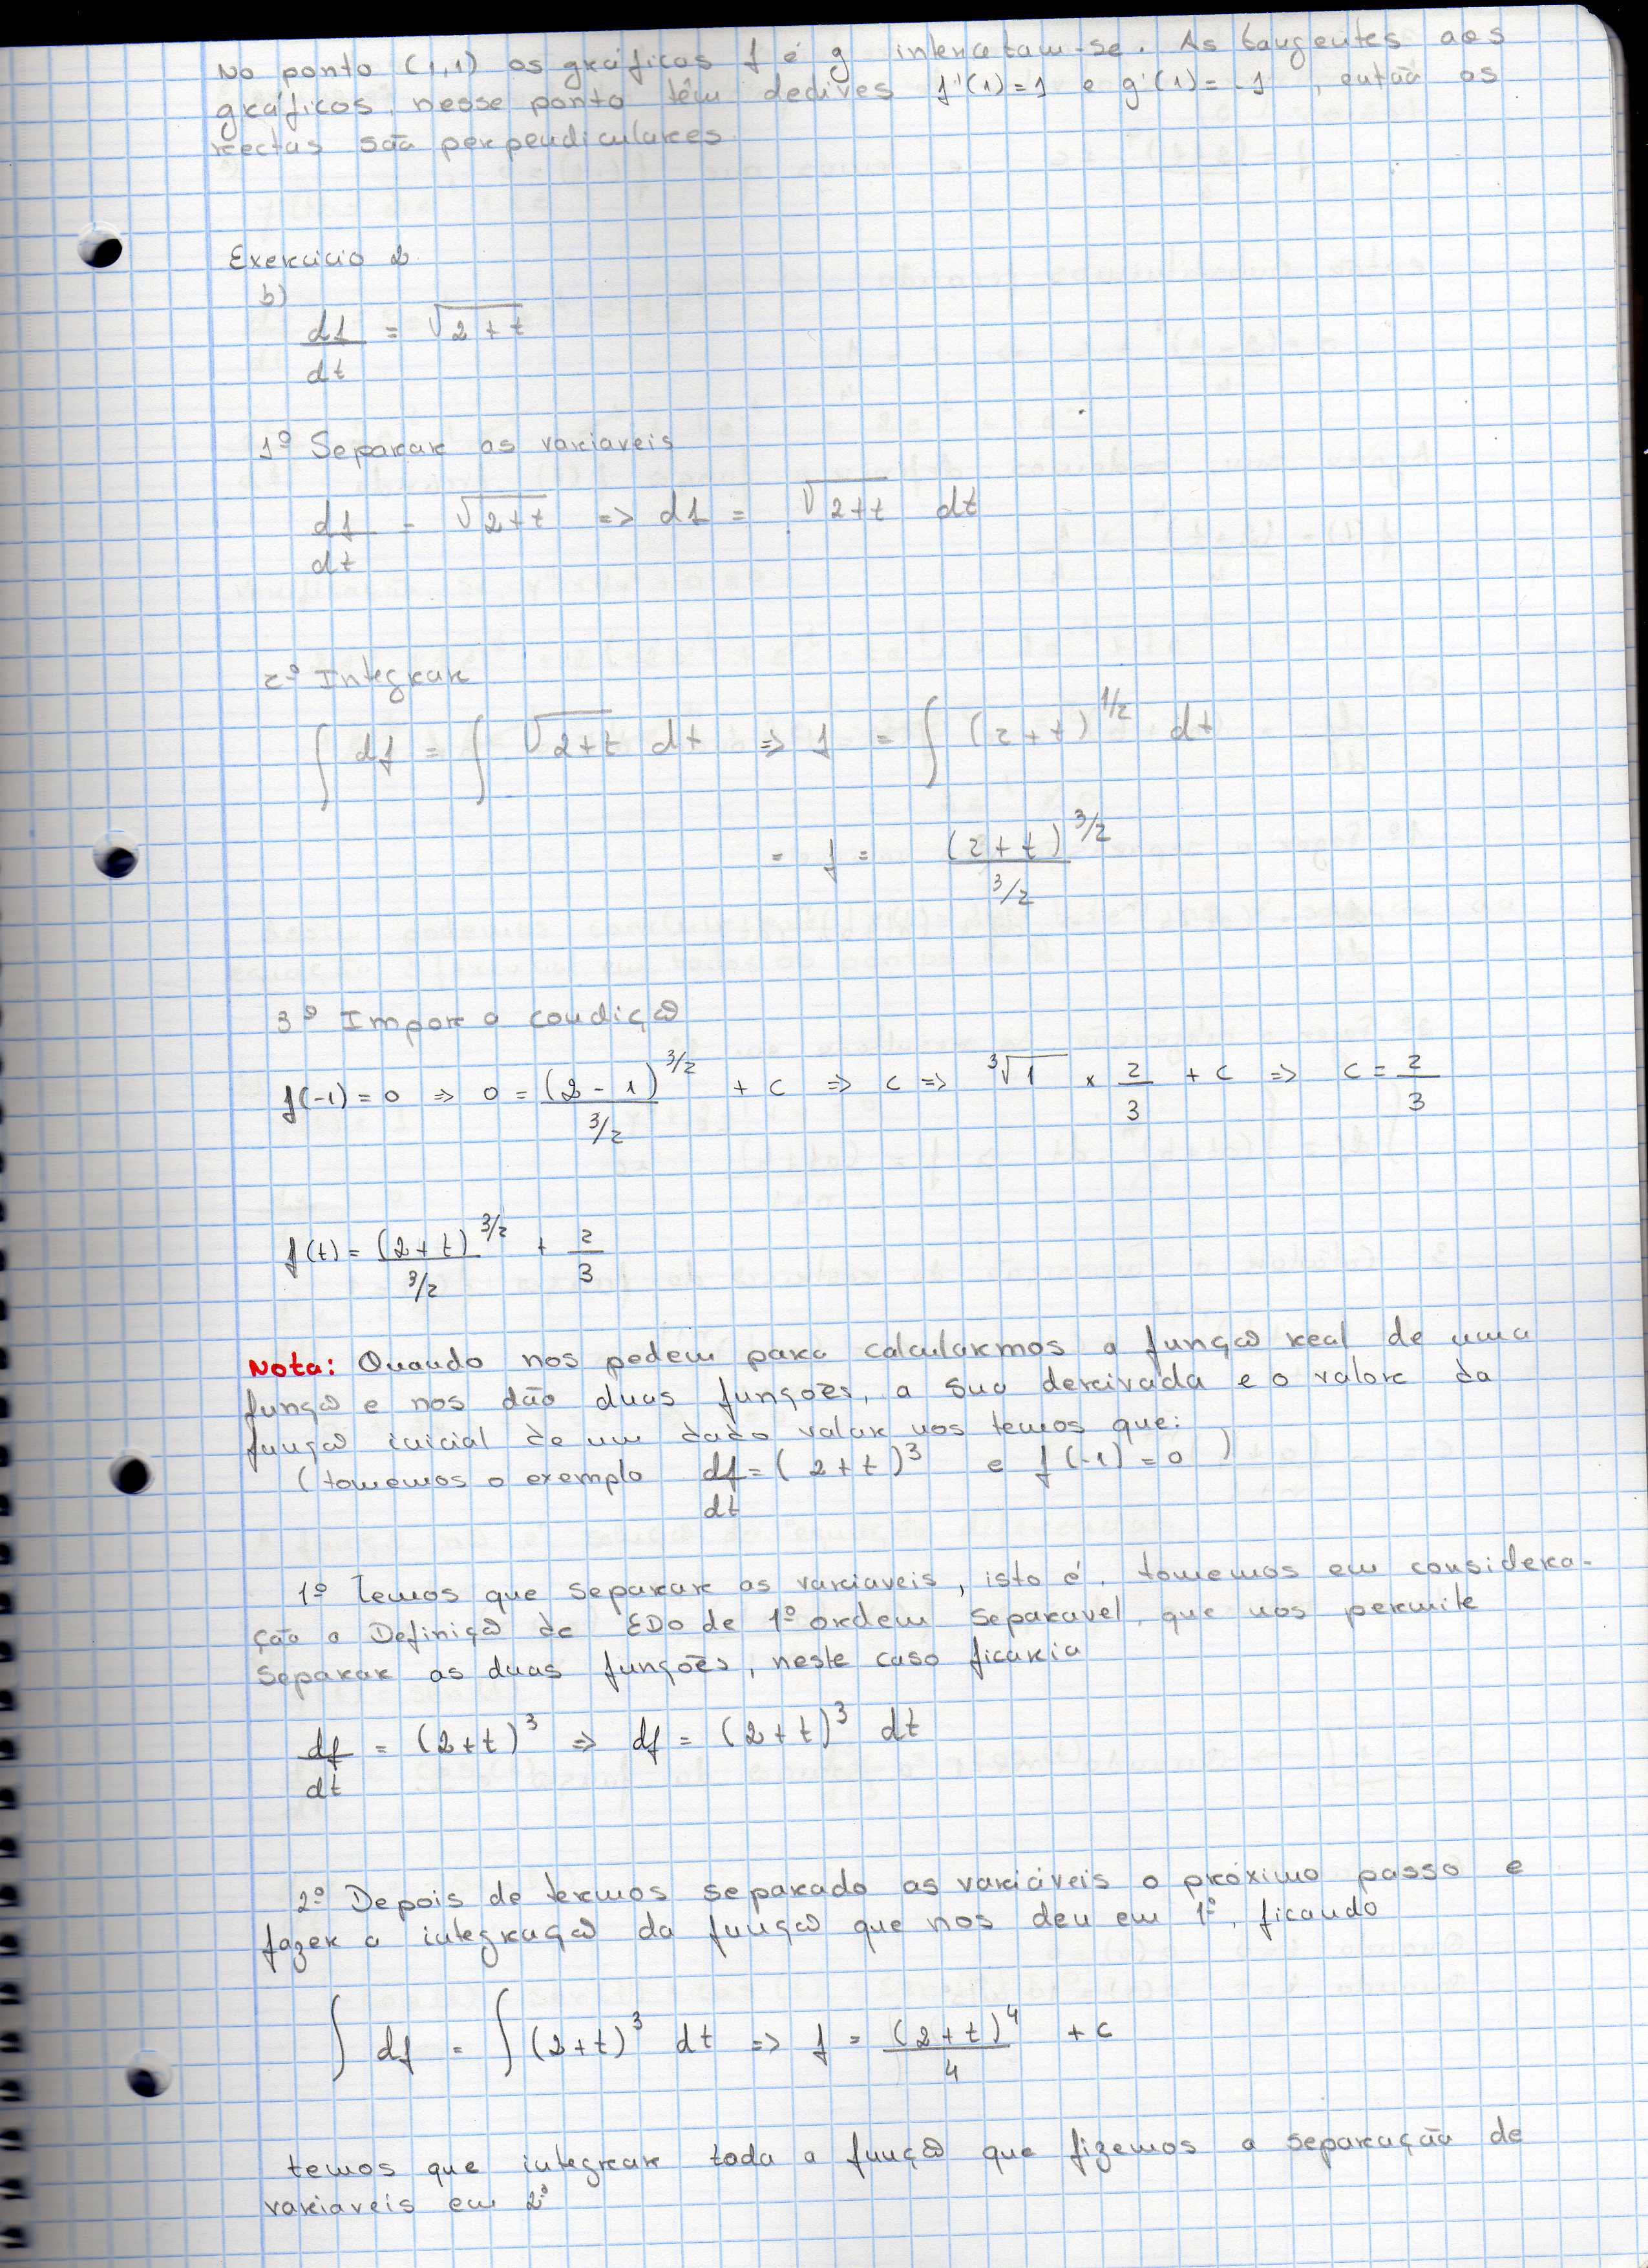 No ponto (1,1) os gráficos f e g intersetam-se. As tangentes aos
gráficos, nesse ponto têm declives f'(1)=1 e g'(1)=-1, então as
rectas são perpendiculares
Exercicio 2
b)
df/dt = √(2+t)
1º Separar as variaveis
df/dt = √(2+t) => df = √(2+t) dt
2º Integrar
∫ df = ∫ √(2+t) dt => f = ∫ (2+t)^(1/2) dt
= f = (2+t)^(3/2) / (3/2)
3º Impor a condição
f(-1)=0 => 0 = (2-1)^(3/2) / (3/2) + c => c => ³√1 × 2/3 + c => c = 2/3
f(t) = (2+t)^(3/2) / (3/2) + 2/3
Nota: Quando nos pedem para calcularmos a função real de uma
função e nos dão duas funções, a sua derivada e o valor da
função inicial de um dado valor nos temos que:
(tomemos o exemplo df/dt = (2+t)³ e f(-1)=0)
1º Temos que separar as variaveis, isto é, tomemos em considera-
ção a Definição de EDO de 1º ordem separavel, que nos permite
separar as duas funções, neste caso ficaria
df/dt = (2+t)³ => df = (2+t)³ dt
2º Depois de termos separado as variáveis o próximo passo e
fazer a integração da função que nos deu em 1º, ficando
∫ df = ∫ (2+t)³ dt => f = (2+t)⁴/4 + c
temos que integrar toda a função que fizemos a separação de
variaveis em 2º